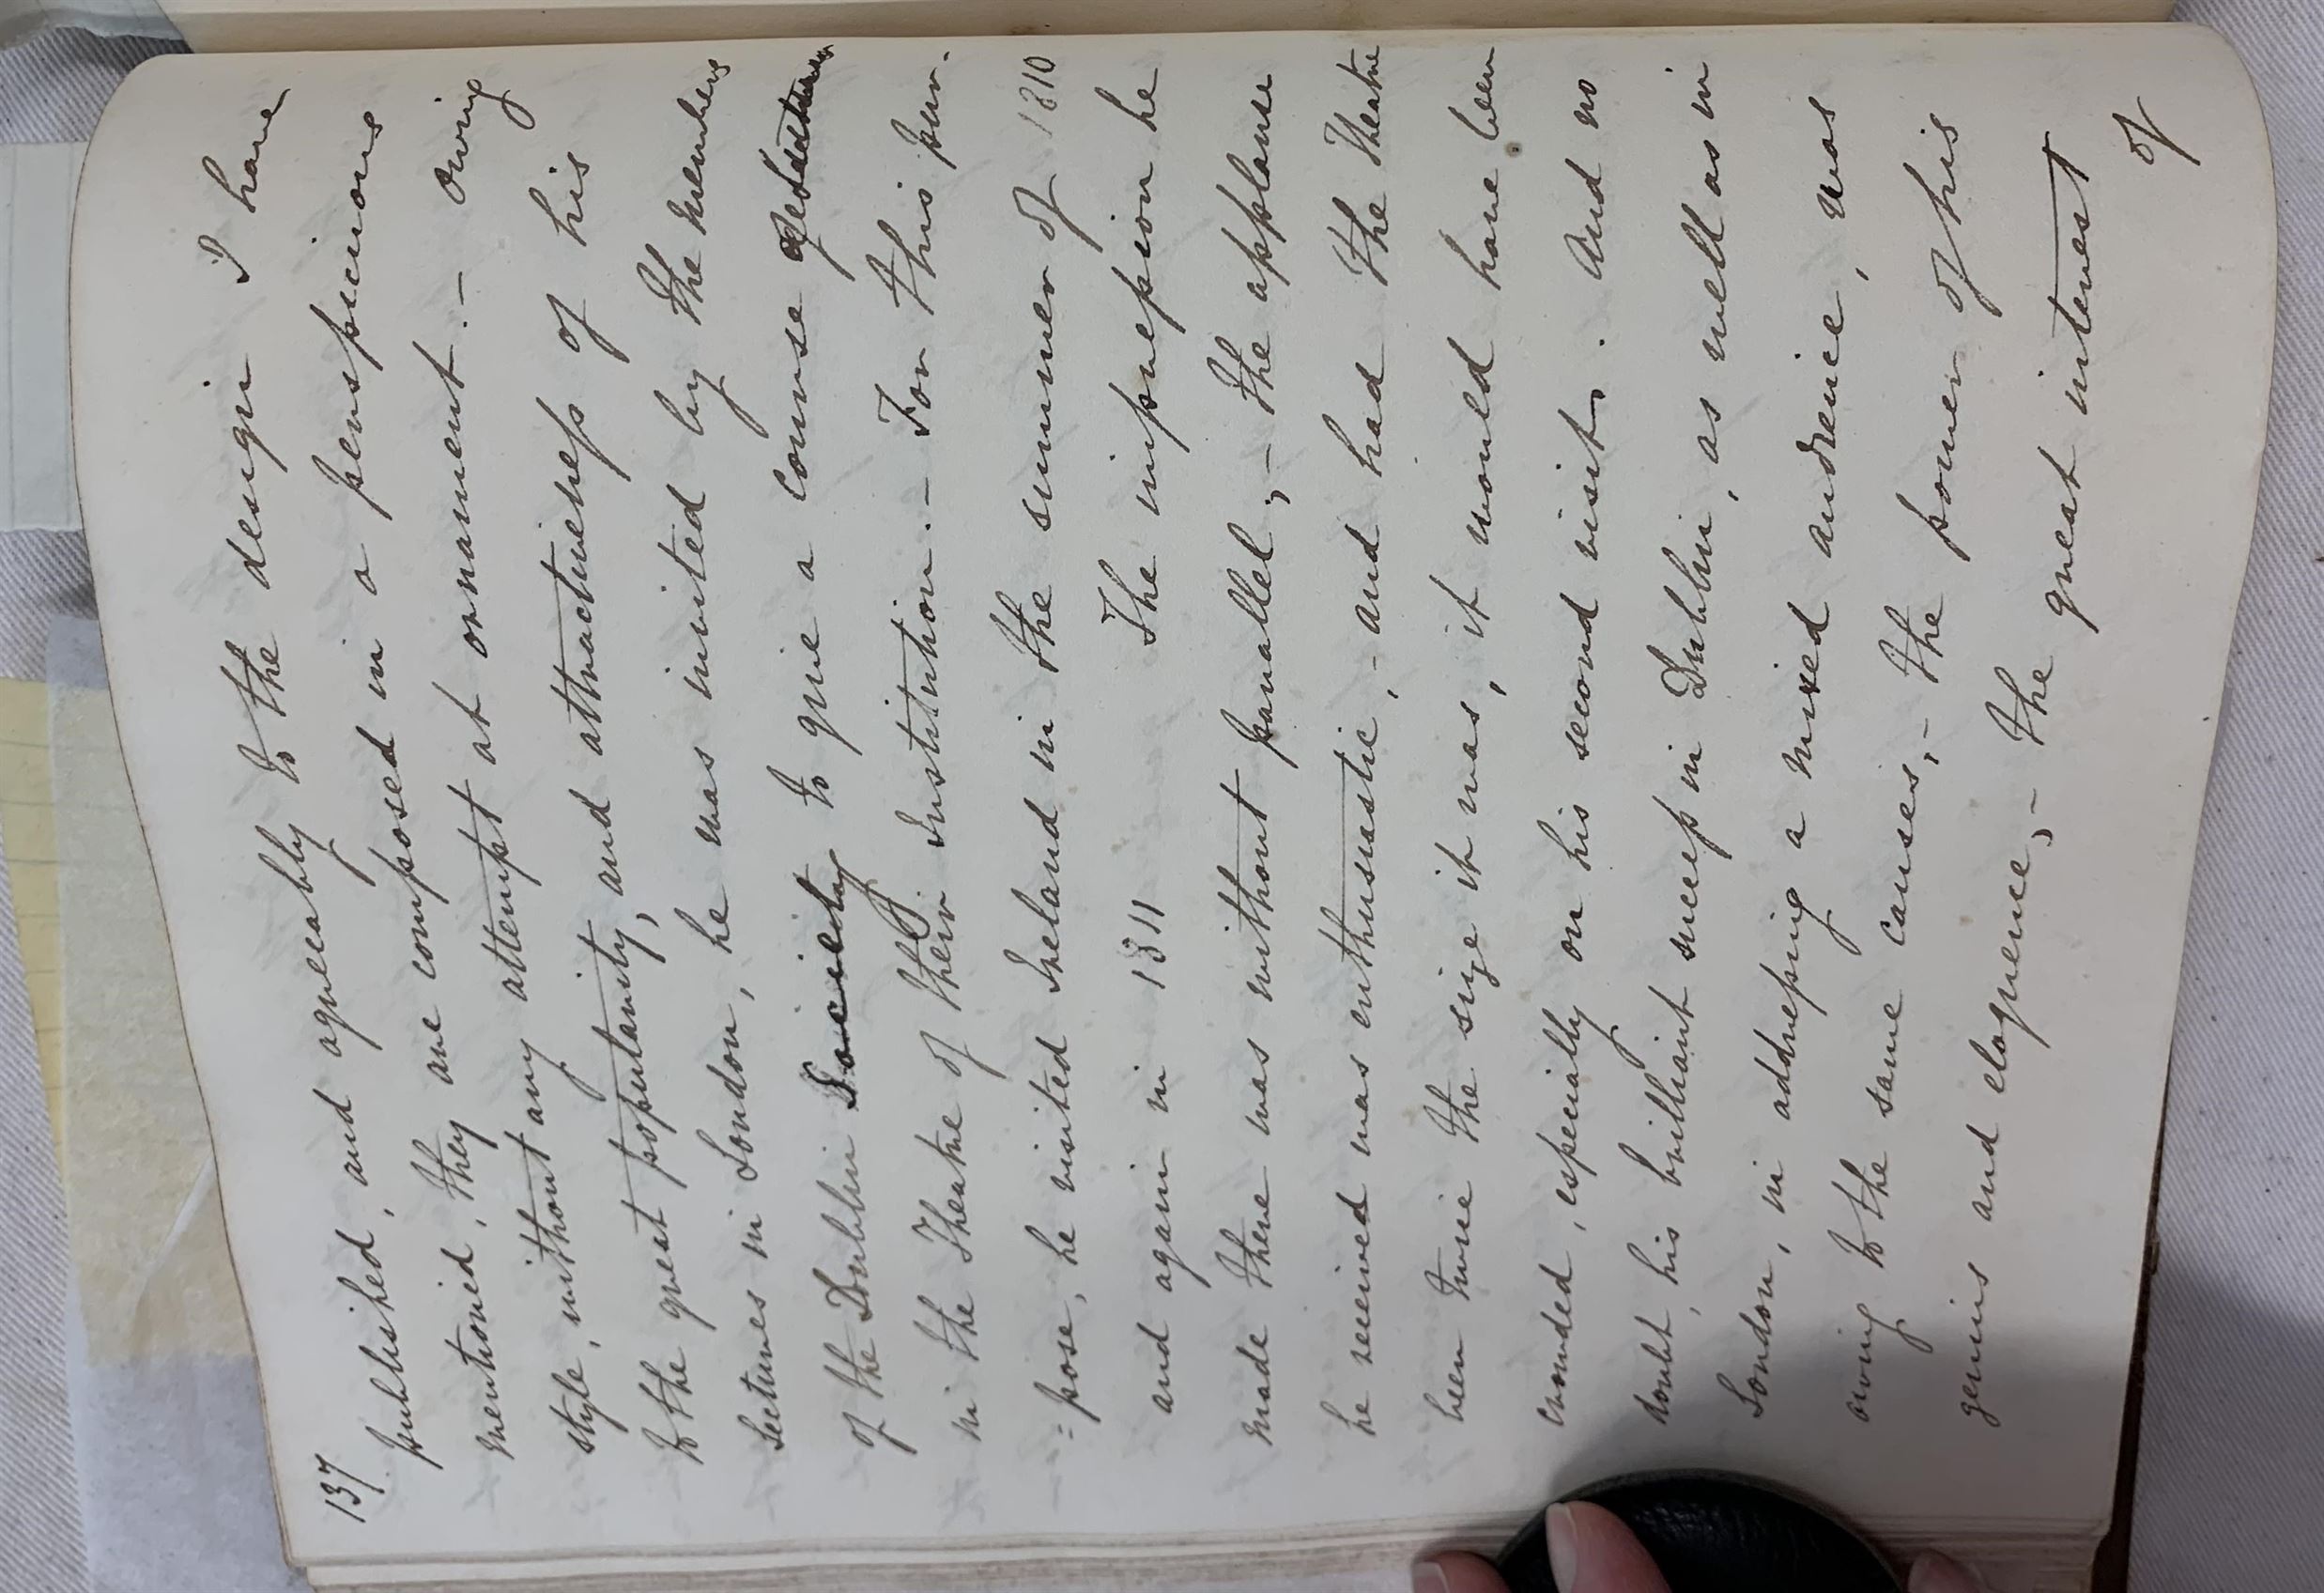 137
published, and agreeably to the design I have
mentioned, they are composed in a perspicuous
style, without any attempt at ornament. – Owing
to the great popularity, and attractiveness of his
Lectures in London, he was invited by the members
of the Dublin Society to give a course of Lectures
in the Theatre of their Institution. – For this pur-
=pose, he visited Ireland in the summer of 1810
and again in 1811 The impression he
made there was without parallel; – the applause
he received was enthusiastic, – and had the Theatre
been twice the size it was, it would have been
crowded, especially on his second visit. And no
doubt, his brilliant success in Dublin, as well as in
London, in addressing a mixed audience, was
owing to the same causes, – the power of his
genius and eloquence, – the great interest
of